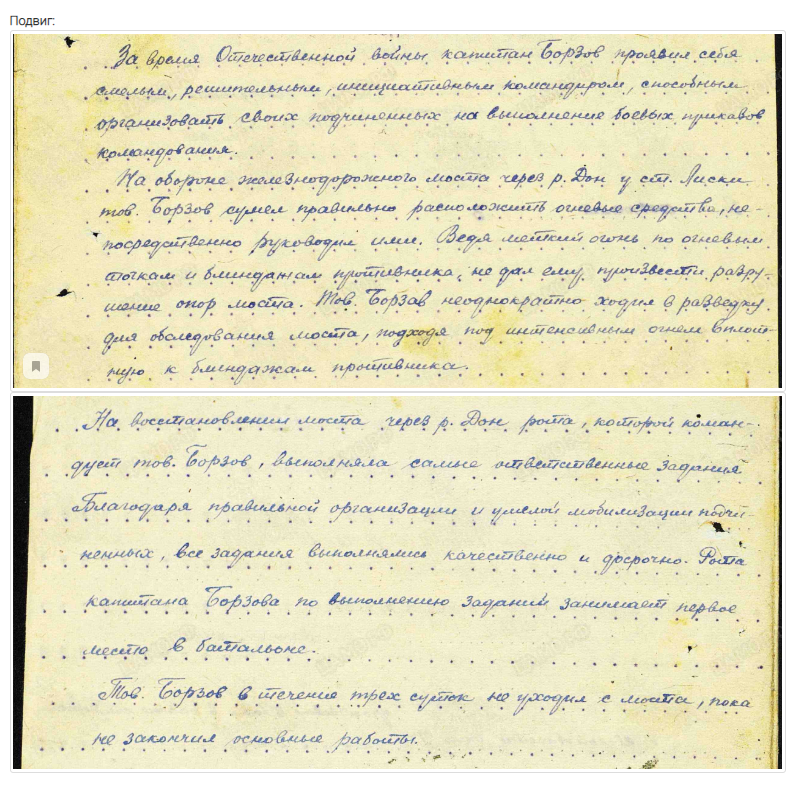 Подвиг:
За время Отечественной войны капитан Борзов проявил себя
смелым, решительным, инициативным командиром, способным
организовать своих подчиненных на выполнение боевых приказов
командования.
На обороне железнодорожного моста через р. Дон у ст. Лиски
тов. Борзов сумел правильно расположить огневые средства, не-
посредственно руководил ими. Ведя меткий огонь по огневым
точкам и блиндажам противника, не дал ему произвести разру-
шение опор моста. Тов. Борзов неоднократно ходил в разведку
для обследования моста, подходя под интенсивным огнем вплот-
ную к блиндажам противника.
На восстановлении моста через р. Дон рота, которой коман-
дует тов. Борзов, выполняла самые ответственные задания
Благодаря правильной организации и умелой мобилизации подчи-
ненных, все задания выполнялись качественно и досрочно. Рота
капитана Борзова по выполнению заданий занимает первое
место в батальоне.
Тов. Борзов в течение трех суток не уходил с моста, пока
не закончил основные работы.